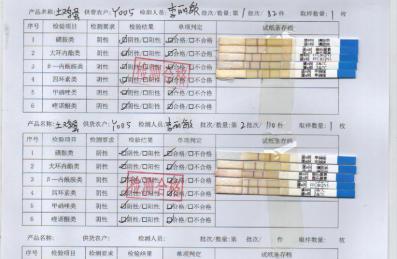 产品名称: 土鸡蛋 供货农户: Y005 检测人员: 批次/数量:第 1 批次/ 82 件 取样数量: 1 枚
序号 检验项目 检测要求 检验结果 单项判定 试纸条存档
1 磺胺类 阴性 ☑阴性/☐阳性 ☑合格/☐不合格
2 大环内酯类 阴性 ☑阴性/☐阳性 ☑合格/☐不合格
3 β-内酰胺类 阴性 ☑阴性/☐阳性 ☑合格/☐不合格
4 四环素类 阴性 ☑阴性/☐阳性 ☑合格/☐不合格
5 甲硝唑类 阴性 ☑阴性/☐阳性 ☑合格/☐不合格
6 喹诺酮类 阴性 ☑阴性/☐阳性 ☑合格/☐不合格
检测合格
产品名称: 土鸡蛋 供货农户: Y005 检测人员: 批次/数量:第 2 批次/ 110 件 取样数量: 1 枚
序号 检验项目 检测要求 检验结果 单项判定 试纸条存档
1 磺胺类 阴性 ☑阴性/☐阳性 ☑合格/☐不合格
2 大环内酯类 阴性 ☑阴性/☐阳性 ☑合格/☐不合格
3 β-内酰胺类 阴性 ☑阴性/☐阳性 ☑合格/☐不合格
4 四环素类 阴性 ☑阴性/☐阳性 ☑合格/☐不合格
5 甲硝唑类 阴性 ☑阴性/☐阳性 ☑合格/☐不合格
6 喹诺酮类 阴性 ☑阴性/☐阳性 ☑合格/☐不合格
检测合格
产品名称: 供货农户: 检测人员: 批次/数量:第 批次/ 件 取样数量: 枚
序号 检验项目 检测要求 检验结果 单项判定 试纸条存档